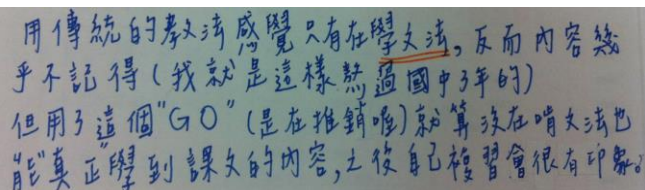 用傳統的教法感覺只有在學文法,反而內容幾
乎不記得(我就是這樣熬過國中3年的)
但用了這個"GO"(是在推銷喔)就算沒在啃文法也
能"真正"學到課文的內容,之後自己複習會很有印象。